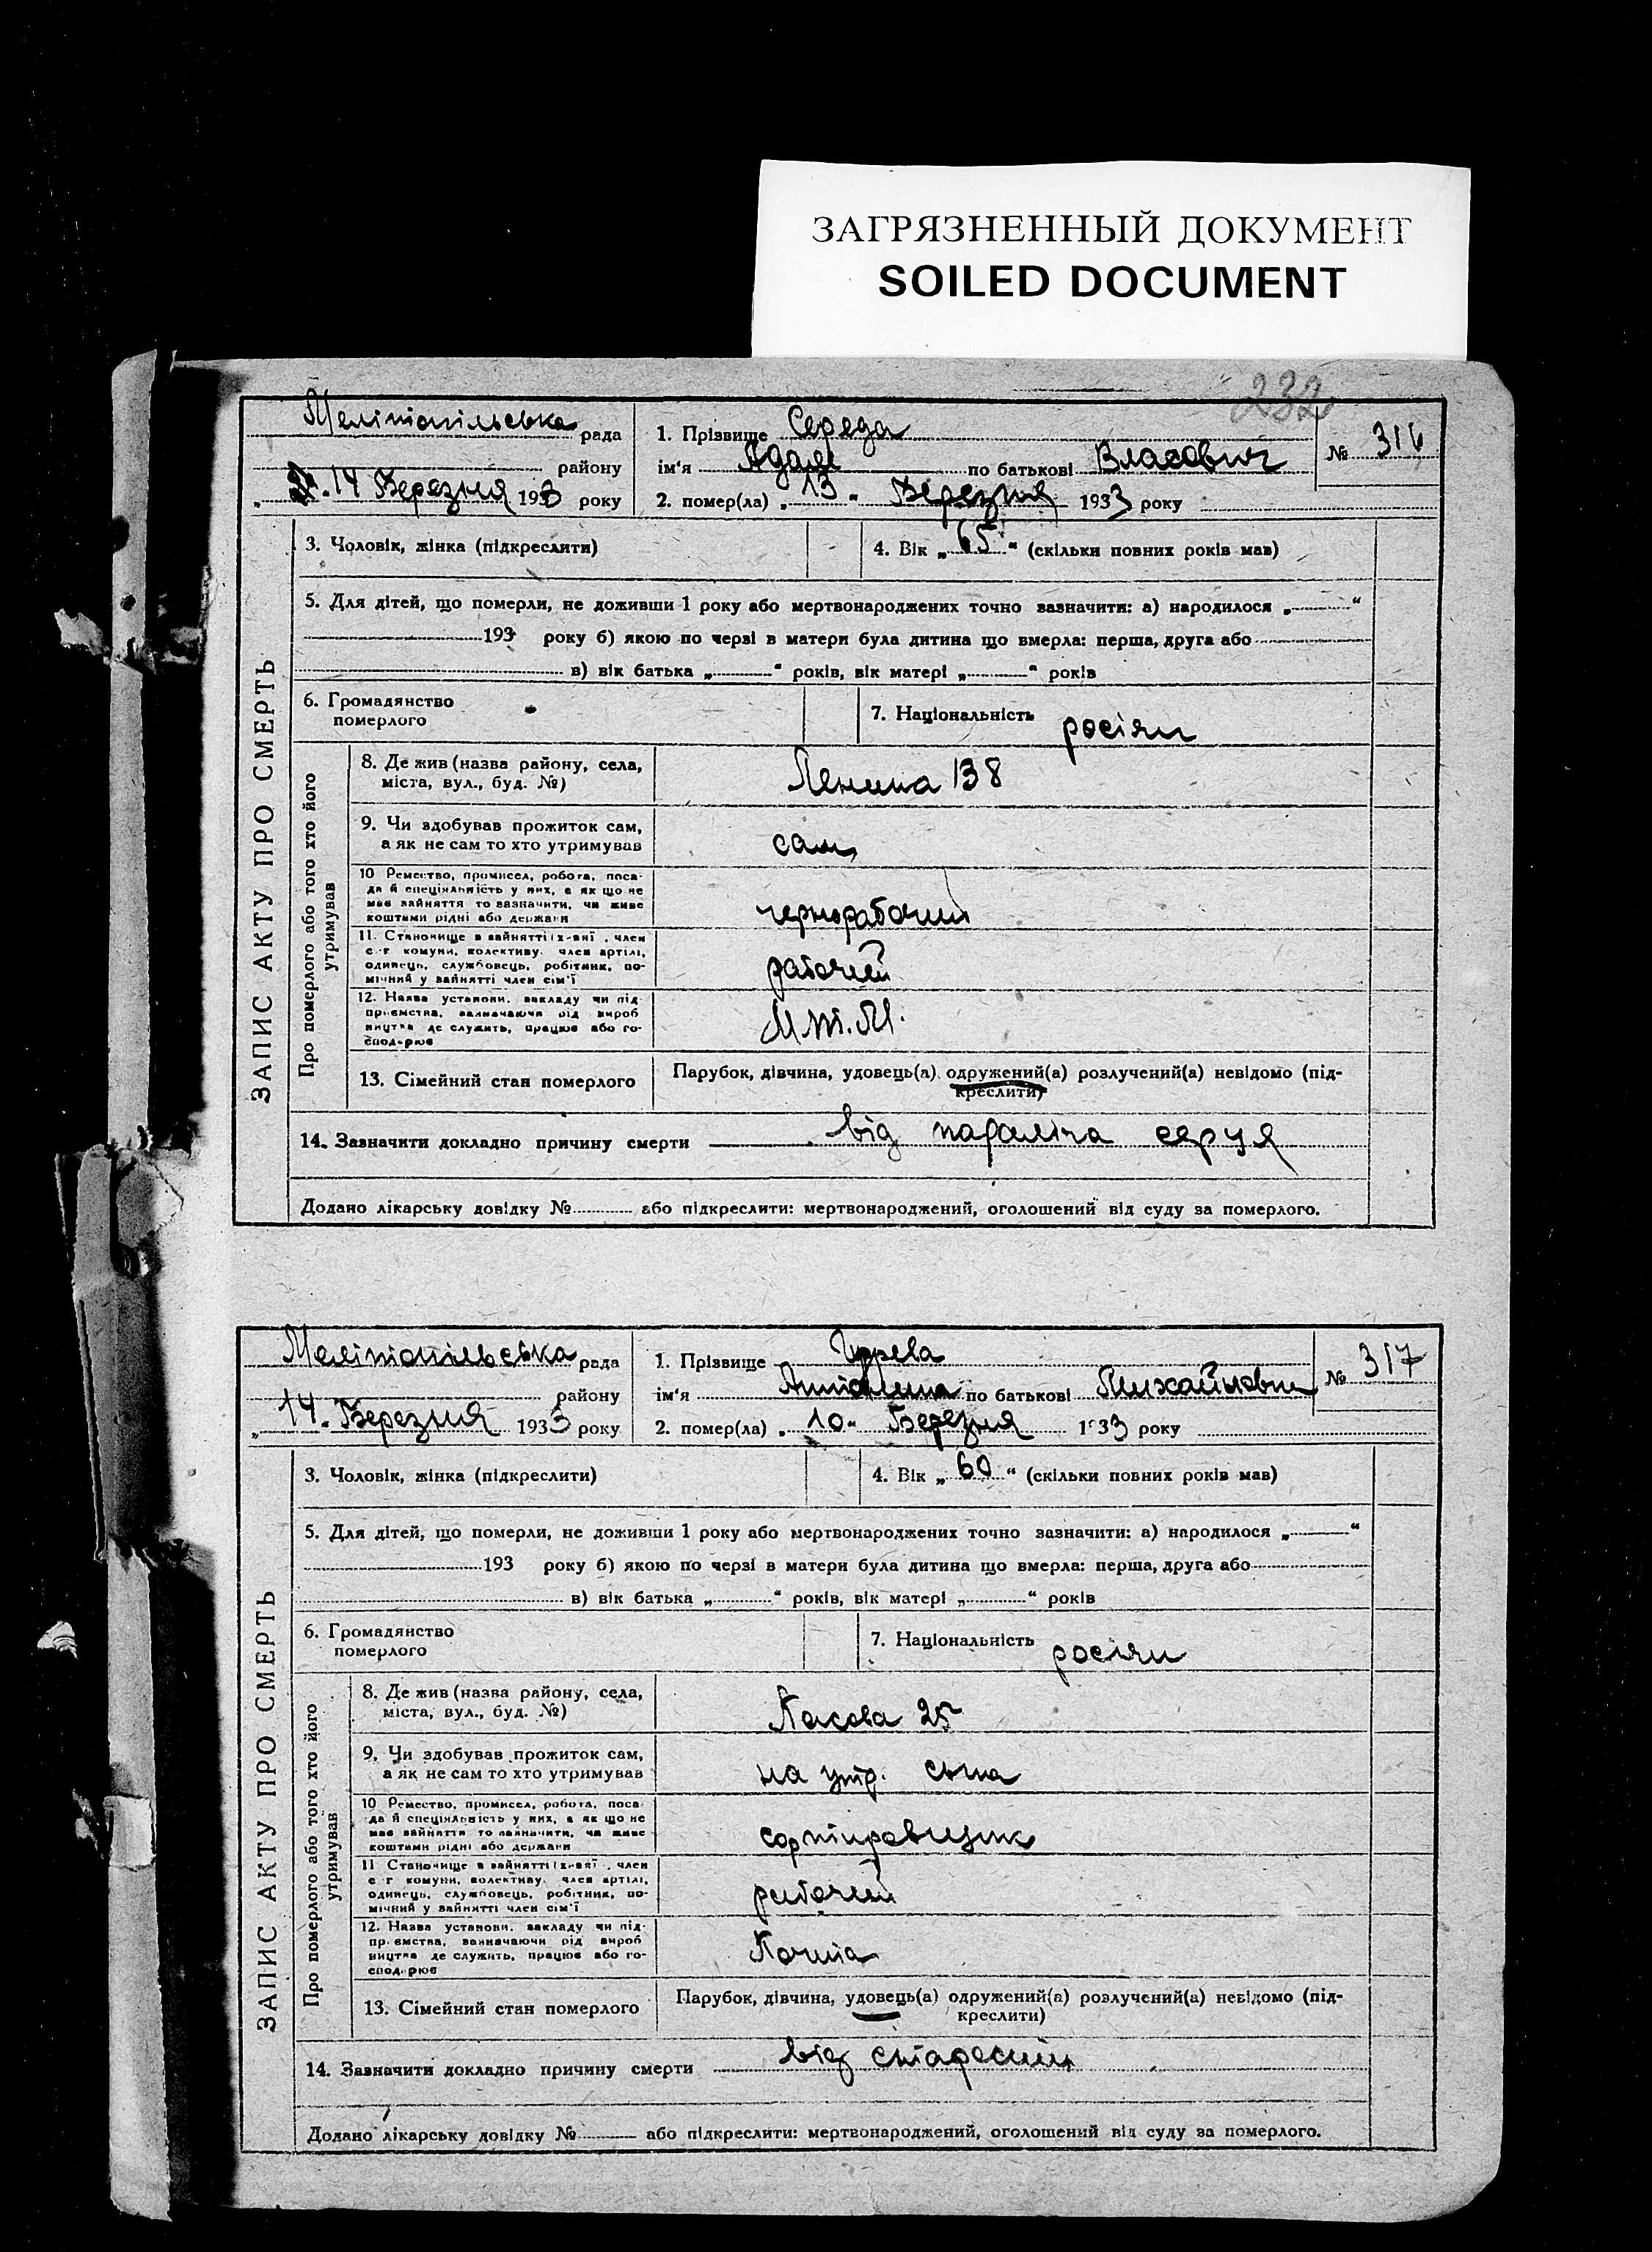 ЗАГРЯЗНЕННЫЙ ДОКУМЕНТ
SOILED DOCUMENT
232
Мелітопільська рада
району
14 Березня 1933 року
1. Прізвище Середа
ім'я Адам по батькові Власович
2. помер(ла) „13" Березня 1933 року
№ 316
ЗАПИС АКТУ ПРО СМЕРТЬ
3. Чоловік, жінка (підкреслити)
4. Вік „65" (скільки повних років мав)
5. Для дітей, що померли, не доживши 1 року або мертвонароджених точно зазначити: а) народилося „ "
193 року б) якою по черзі в матери була дитина що вмерла: перша, друга або
в) вік батька „ " років, вік матері „ " років
6. Громадянство
померлого
7. Національність росіян
Про померлого або того хто його
утримував
8. Де жив (назва району, села,
міста, вул., буд. №)
Ленина 138
9. Чи здобував прожиток сам,
а як не сам то хто утримував
сам
10 Ремество, промисел, робота, поса-
да й спеціяльність у них, а як що не
мав зайняття то зазначити, чи живе
коштами рідні або держави
чернорабочий
11. Становище в зайнятті (х-вні , член
с.-г комуни, колективу, член артілі,
одинець, службовець, робітник, по-
мічний у зайнятті член сім'ї
рабочий
12. Назва установи, закладу чи під-
приємства, зазначаючи від вироб
ництва де служить, працює або го-
сподарює
13. Сімейний стан померлого
Парубок, дівчина, удовець(а) одружений(а) розлучений(а) невідомо (під-
креслити)
14. Зазначити докладно причину смерти від параліча серця
Додано лікарську довідку № або підкреслити: мертвонароджений, оголошений від суду за померлого.
Мелітопільська рада
району
14. Березня 1933 року
1. Прізвище
ім'я по батькові Михайловна
2. помер(ла) „10" Березня 1933 року
№ 317
ЗАПИС АКТУ ПРО СМЕРТЬ
3. Чоловік, жінка (підкреслити)
4. Вік „60" (скільки повних років мав)
5. Для дітей, що померли, не доживши 1 року або мертвонароджених точно зазначити: а) народилося „ "
193 року б) якою по черзі в матери була дитина що вмерла: перша, друга або
в) вік батька „ " років, вік матері „ " років
6. Громадянство
померлого
7. Національність росіян
Про померлого або того хто його
утримував
8. Де жив (назва району, села,
міста, вул., буд. №)
25
9. Чи здобував прожиток сам,
а як не сам то хто утримував
на утр. сына
10 Ремество, промисел, робота, поса-
да й спеціяльність у них, а як що не
мав зайняття то зазначити, чи живе
коштами рідні або держави
сортировщик
11 Становище в зайнятті (х-вні , член
с г комуни, колективу, член артілі,
одинець, службовець, робітник, по-
мічний у зайнятті член сім'ї
рабочий
12. Назва установи, закладу чи під-
приємства, зазначаючи від вироб
ництва де служить, працює або го-
сподарює
Почта
13. Сімейний стан померлого
Парубок, дівчина, удовець(а) одружений(а) розлучений(а) невідомо (під-
креслити)
14. Зазначити докладно причину смерти від старости
Додано лікарську довідку № або підкреслити: мертвонароджений, оголошений від суду за померлого.